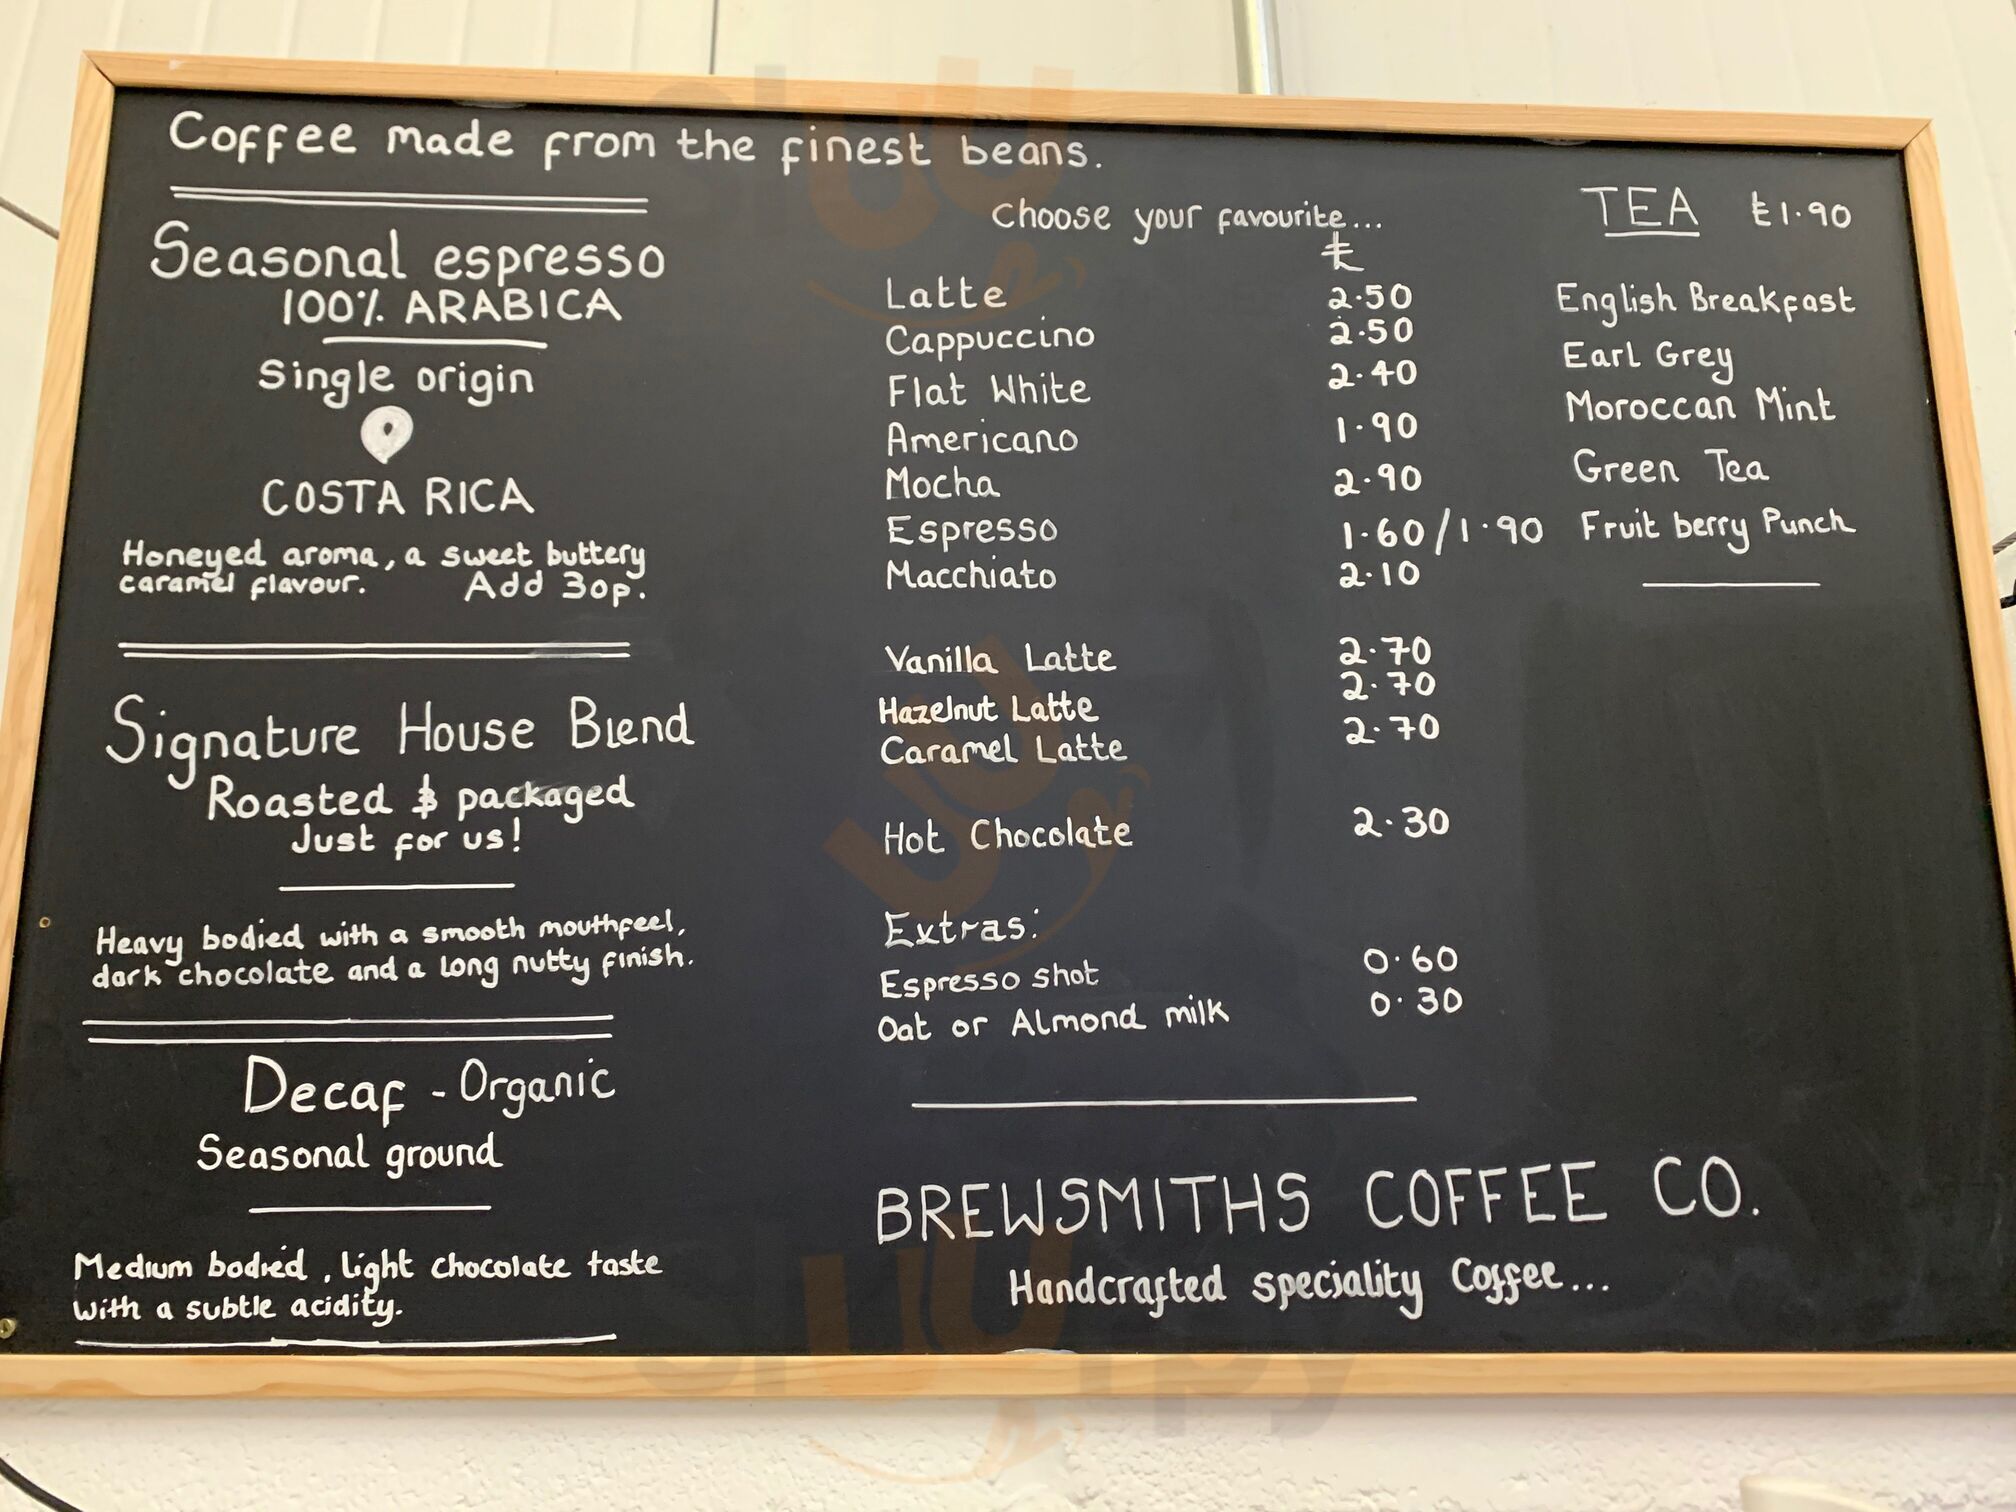 Coffee made from the finest beans.
Seasonal espresso
100% ARABICA
Single origin
COSTA RICA
Honeyed aroma, a sweet buttery
caramel flavour. Add 30p.
Signature House Blend
Roasted & packaged
Just for us!
Heavy bodied with a smooth mouthfeel,
dark chocolate and a long nutty finish.
Decaf - Organic
Seasonal ground
Medium bodied, light chocolate taste
with a subtle acidity.
Choose your favourite...
£
Latte 2.50
Cappuccino 2.50
Flat White 2.40
Americano 1.90
Mocha 2.90
Espresso 1.60/1.90
Macchiato 2.10
Vanilla Latte 2.70
Hazelnut Latte 2.70
Caramel Latte 2.70
Hot Chocolate 2.30
Extras:
Espresso shot 0.60
Oat or Almond milk 0.30
TEA £1.90
English Breakfast
Earl Grey
Moroccan Mint
Green Tea
Fruit berry Punch
BREWSMITHS COFFEE CO.
Handcrafted speciality Coffee...